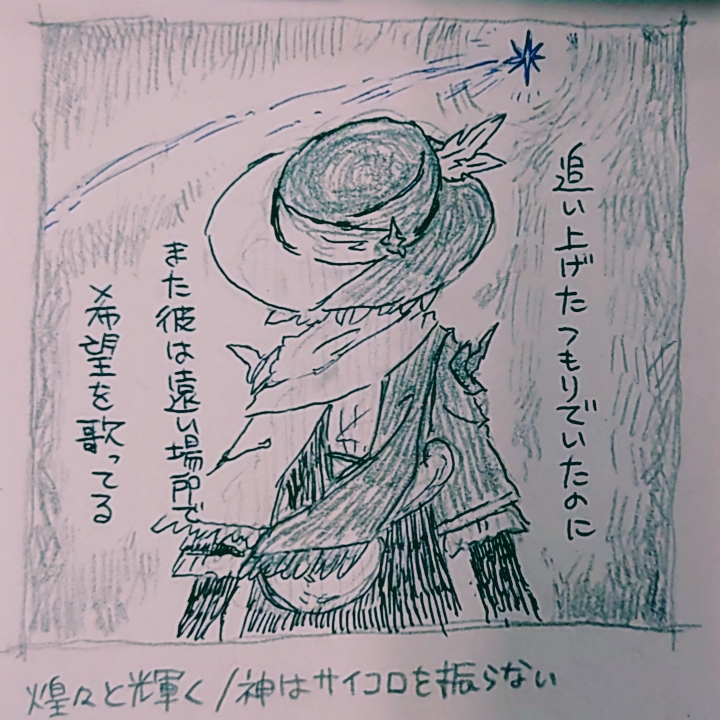 追い上げたつもりでいたのに
また彼は遠い場所で
希望を歌ってる
煌々と輝く/神はサイコロを振らない